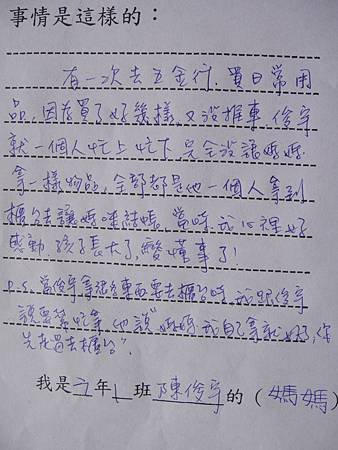 事情是這樣的：
有一次去五金行，買日常用
品，因為買了好幾樣，又沒推車，俊宇
就一個人忙上忙下，完全沒讓媽媽
拿一樣物品，全部都是他一個人拿到
櫃台去讓媽咪結帳，當時，我心裡好
感動，孩子長大了，變懂事了！
P.S. 當俊宇拿很多東西要去櫃台時，我跟俊宇
說要幫忙拿，他說"媽媽，我自己拿就好，你
先在過去櫃台"。
我是六年1班陳俊宇的（媽媽）